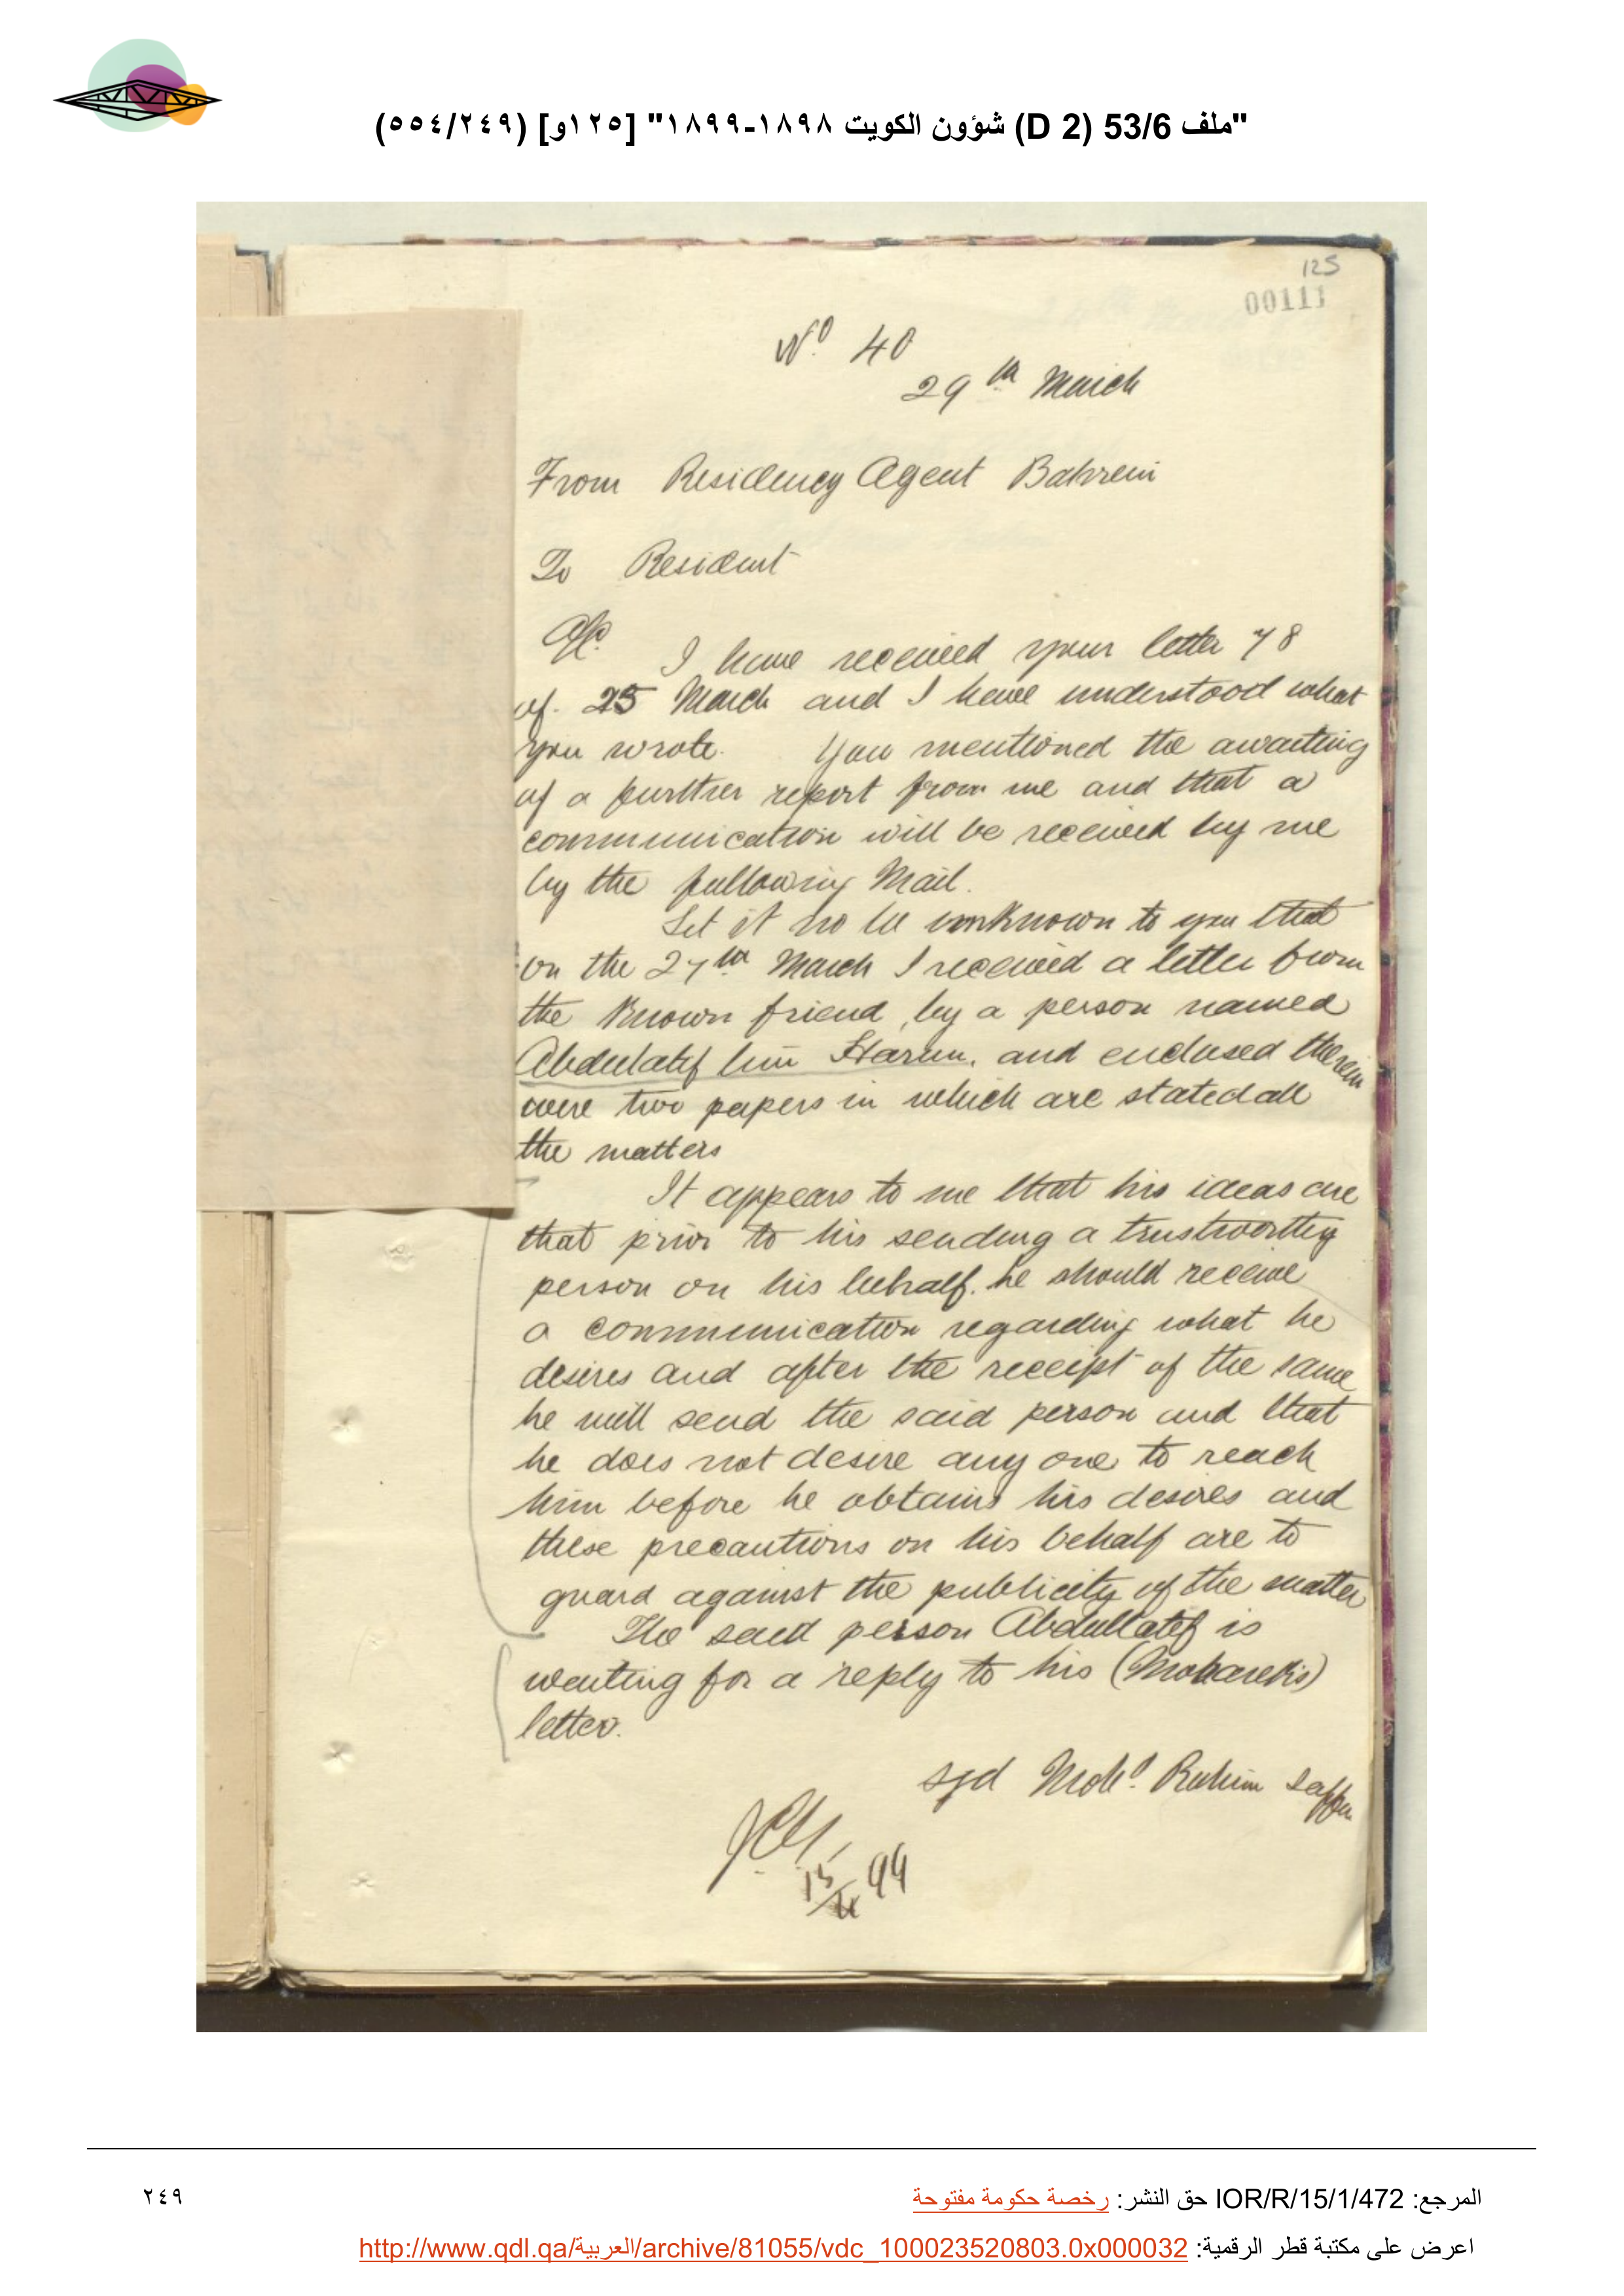 "ملف 53/6 (D 2) شؤون الكويت ١٨٩٨-١٨٩٩" [١٢٥و] (٢٤٩/٥٥٤)
125
00111
No. 40
29th March
From Residency Agent Bahrein
To Resident
I have received your letter 78
of 25 March and I have understood what
you wrote. You mentioned the awaiting
of a further report from me and that a
communication will be received by me
by the following Mail.
Let it no be unknown to you that
on the 27th March I received a letter from
the known friend, by a person named
Abdulatif bin Harun, and enclosed therein
were two papers in which are stated all
the matters
It appears to me that his ideas are
that prior to his sending a trustworthy
person on his behalf. he should receive
a communication regarding what he
desires and after the receipt of the same
he will send the said person and that
he does not desire any one to reach
him before he obtains his desires and
these precautions on his behalf are to
guard against the publicity of the matter
The said person Abdullatif is
waiting for a reply to his (Mobarek's)
letter.
sgd Mohd. Rahim Saffar
المرجع: IOR/R/15/1/472 حق النشر: رخصة حكومة مفتوحة
٢٤٩
اعرض على مكتبة قطر الرقمية: http://www.qdl.qa/العربية/archive/81055/vdc_100023520803.0x000032